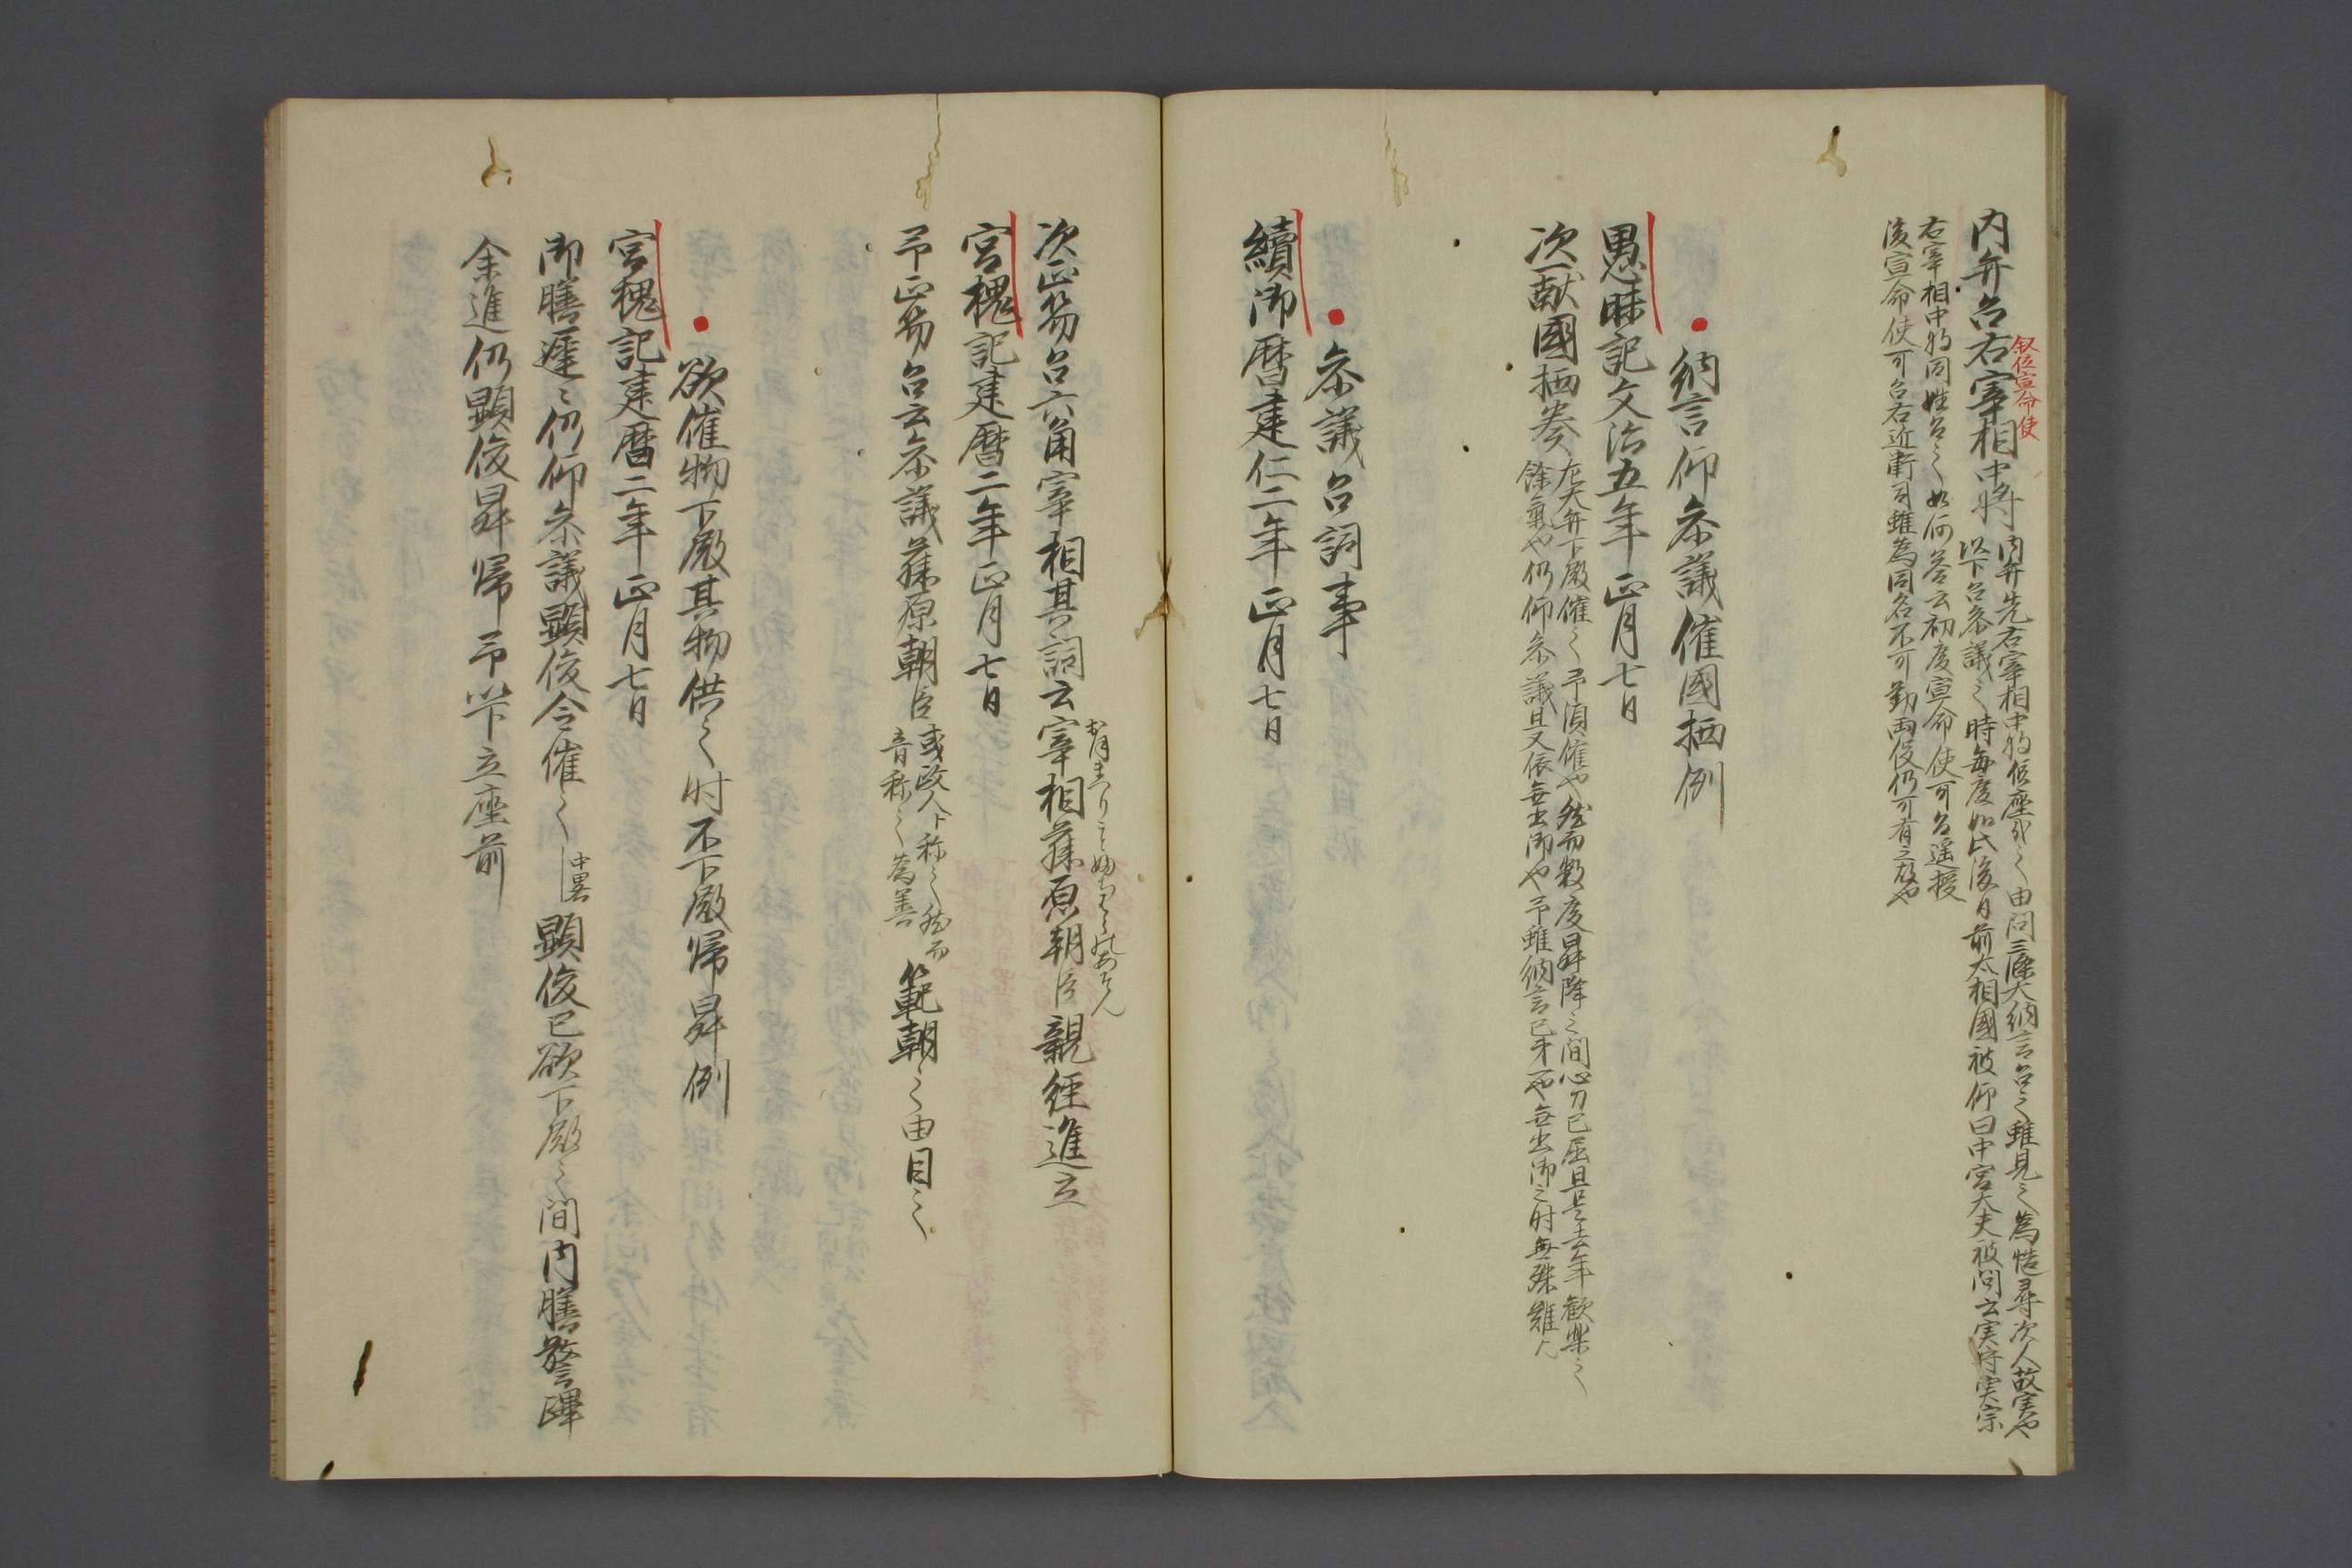 叙位宣命使
内弁召右宰相中将
内弁先右宰相中将位座哉之由問三條大納言召之雖見之為慥尋次人故実也
以下召参議之時毎度如此後日前太相國被仰曰中宮大夫被問云実守実宗
右宰相中将同姓召之如何答云初度宣命使可召遥授
後宣命使可召右近衛司雖為同名不可勤両役仍可有之故也
納言仰参議催國栖例
愚昧記文治五年正月七日
次一献國栖奏
左大弁下殿催之予須催也然而数度昇降之間心力已屈且是去年歓樂之
餘氣也仍仰参議且又依無出御也予雖納言已才一也無出御之时無殊難欤
参議召詞事
續御暦建仁二年正月七日
次正笏召六角宰相其詞云宰相藤原朝臣親經進立
宮槐記建暦二年正月七日
予正笏召云参議藤原朝臣
或政人ト称之然而
音称之為善
範朝之由目之
欲催物下殿其物供之时不下殿帰昇例
宮槐記建暦二年正月七日
御膳遅々仍仰参議顕俊令催之
中略
顕俊已欲下殿之間内膳警蹕
余進仍顕俊昇帰予以下立座前